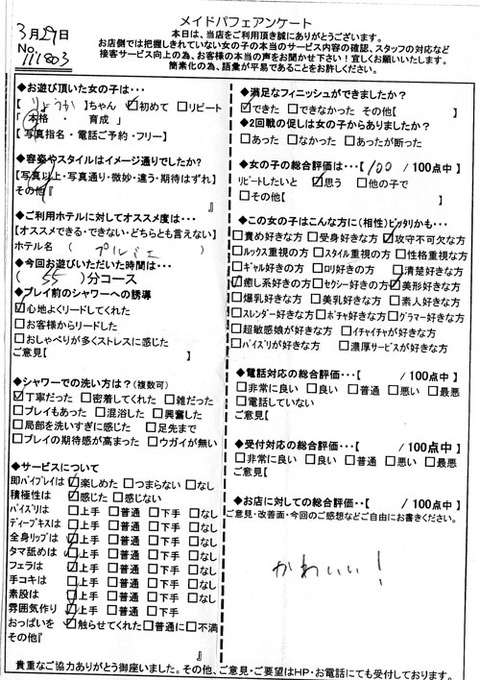 メイドパフェアンケート
3月29日
No. 111803
本日は、当店をご利用頂き誠にありがとうございます。
お店側では把握しきれていない女の子の本当のサービス内容の確認、スタッフの対応など
接客サービス向上の為、お客様の本当の声をお聞かせ下さい！宜しくお願いいたします。
簡素化の為、語彙が平易であることをお許しください。
◆お遊び頂いた女の子は・・・
【 】ちゃん ☑初めて □リピート
「本格 ・ 育成 」
【写真指名・電話ご予約・フリー】
◆容姿やスタイルはイメージ通りでしたか？
【写真以上・写真通り・微妙・違う・期待はずれ】
その他『 』
◆ご利用ホテルに対してオススメ度は・・・
【オススメできる・できない・どちらとも言えない】
ホテル名（ プルミエ ）
◆今回お遊びいただいた時間は・・・
（ 55 ）分コース
◆プレイ前のシャワーへの誘導
☑心地よくリードしてくれた
□お客様からリードした
□おしゃべりが多くストレスに感じた
ご意見【 】
◆シャワーでの洗い方は？（複数可）
☑丁寧だった □密着してくれた □雑だった
□プレイもあった □混浴した □興奮した
□局部を洗いすぎに感じた □足先まで
□プレイの期待感が高まった □ウガイが無い
◆サービスについて
即パイプレイは ☑楽しめた □つまらない □なし
積極性は ☑感じた □感じない
パイズリは □上手 □普通 □下手 □なし
ディープキスは □上手 □普通 □下手 □なし
全身リップは ☑上手 □普通 □下手 □なし
タマ舐めは ☑上手 □普通 □下手 □なし
フェラは ☑上手 □普通 □下手 □なし
手コキは □上手 □普通 □下手 □なし
素股は ☑上手 □普通 □下手 □なし
雰囲気作り ☑上手 □普通 □下手
おっぱいを ☑触らせてくれた □普通に □不満
その他『 』
◆満足なフィニッシュができましたか？
☑できた □できなかった その他【 】
◆2回戦の促しは女の子からありましたか？
□あった □なかった □あったが断った
◆女の子の総合評価は・・・【 100 / 100点中】
リピートしたいと ☑思う □他の子で
□その他【 】
◆この女の子はこんな方に（相性）ピッタリかも・・・
□責め好きな方 □受身好きな方 ☑攻守不可欠な方
□ルックス重視の方 □スタイル重視の方 □性格重視な方
□ギャル好きの方 □ロリ好きの方 □清楚好きな方
☑癒し系好きな方 □セクシー好きの方 ☑美形好きな方
□爆乳好きな方 □美乳好きな方 □素人好きな方
□スレンダー好きな方 □ポチャ好きな方 □グラマー好きな方
□超敏感娘が好きな方 □イチャイチャが好きな方
□パイズリが好きな方 □濃厚サービスが好きな方
◆電話対応の総合評価・・・【 / 100点中】
□非常に良い □良い □普通 □悪い □最悪
□電話していない
ご意見【
◆受付対応の総合評価・・・【 / 100点中】
□非常に良い □良い □普通 □悪い □最悪
ご意見【
◆お店に対しての総合評価・・・【 / 100点中】
ご意見・改善面・今回のご感想などご自由にお書きください。
かわいい！
貴重なご協力ありがとう御座いました。その他、ご意見・ご要望はHP・お電話にても受付しております。